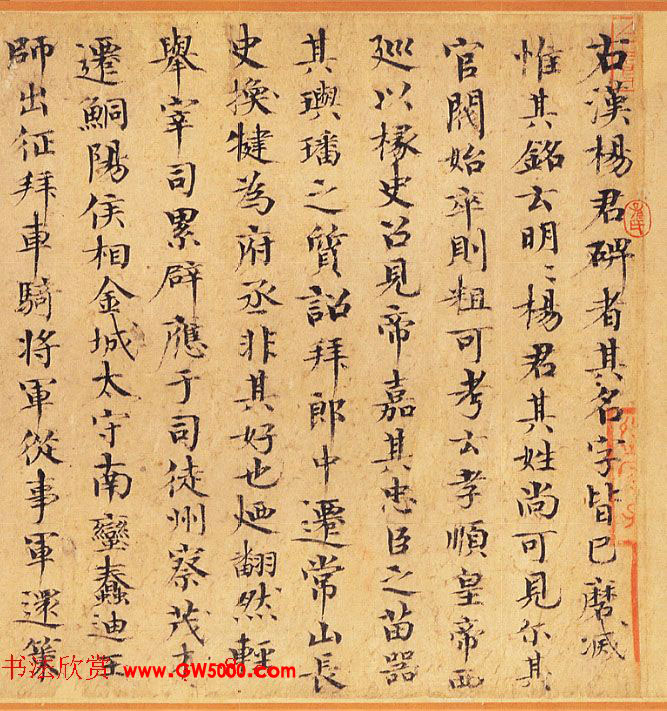 右漢楊君碑者其名字皆已磨滅
惟其銘云明〻楊君其姓尚可見尓其
官閥始卒則粗可考云孝順皇帝西
巡以掾史召見帝嘉其忠臣之苗器
其璵璠之質詔拜郎中遷常山長
史換犍為府丞非其好也迺翻然輕
舉宰司累辟應于司徒州察茂才
遷鮦陽侯相金城太守南蠻蠢迪王
師出征拜車騎將軍從事軍還策
书法欣赏 www.GW5000.com